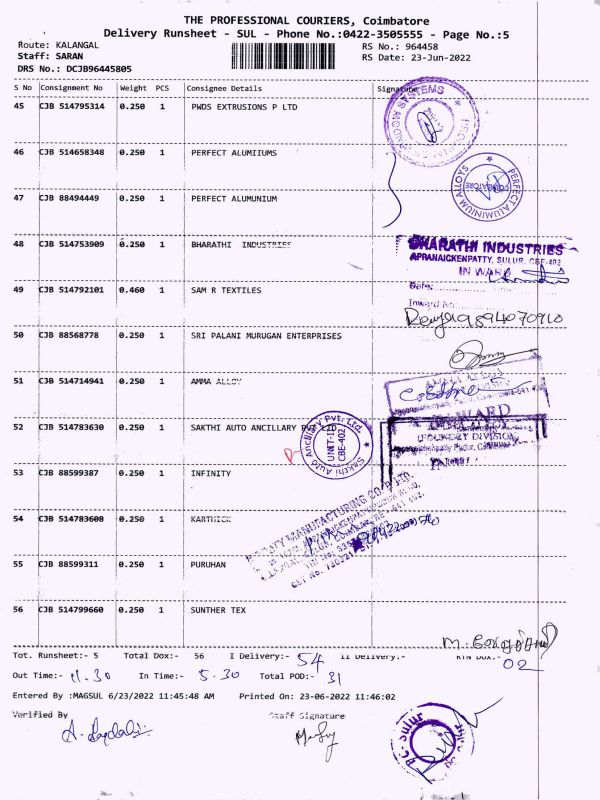 THE PROFESSIONAL COURIERS, Coimbatore
Delivery Runsheet - SUL - Phone No.:0422-3505555 - Page No.:5
Route: KALANGAL RS No.: 964458
Staff: SARAN RS Date: 23-Jun-2022
DRS No.: DCJB96445805
S No Consignment No Weight PCS Consignee Details Signature
45 CJB 514795314 0.250 1 PWDS EXTRUSIONS P LTD
46 CJB 514658348 0.250 1 PERFECT ALUMIIUMS
PERFECT ALUMINIUM ALLOYS
COIMBATORE
47 CJB 88494449 0.250 1 PERFECT ALUMUNIUM
48 CJB 514753909 0.250 1 BHARATHI INDUSTRIES
BHARATHI INDUSTRIES
APPANAICKENPATTY, SULUR, CBE-402
IN WARD
Date:
Inward No.
49 CJB 514792101 0.460 1 SAM R TEXTILES
50 CJB 88568778 0.250 1 SRI PALANI MURUGAN ENTERPRISES
51 CJB 514714941 0.250 1 AMMA ALLOY
52 CJB 514783630 0.250 1 SAKTHI AUTO ANCILLARY PVT LTD
Sakthi Auto Ancillary Pvt. Ltd.
UNIT-II
CBE-402
(FOUNDRY DIVISION)
53 CJB 88599387 0.250 1 INFINITY
54 CJB 514783608 0.250 1 KARTHICK
55 CJB 88599311 0.250 1 PURUHAN
56 CJB 514799660 0.250 1 SUNTHER TEX
Tot. Runsheet:- 5 Total Dox:- 56 I Delivery:- 54 II Delivery:- RTN Dox:- 02
Out Time:- 11.30 In Time:- 5.30 Total POD:- 31
Entered By :MAGSUL 6/23/2022 11:45:48 AM Printed On: 23-06-2022 11:46:02
Verified By Staff Signature